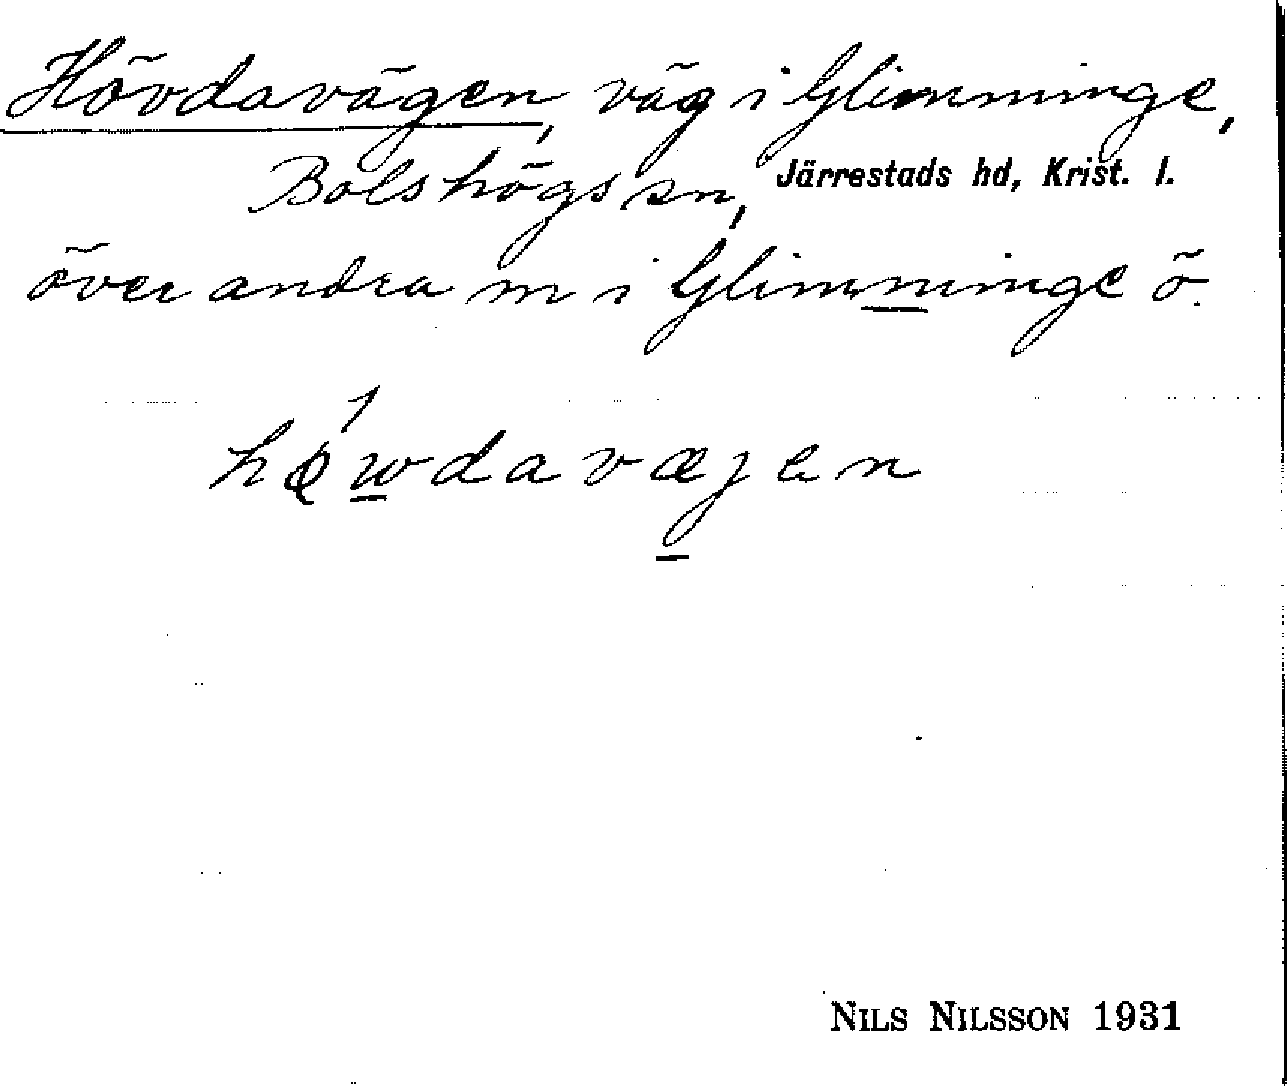 Hövdavägen, väg i Glimminge,
Bolshögs sn, Järrestads hd, Krist. l.
över andra m i Glimminge ö.
hǿ̨wdavæjen
NILS NILSSON 1931